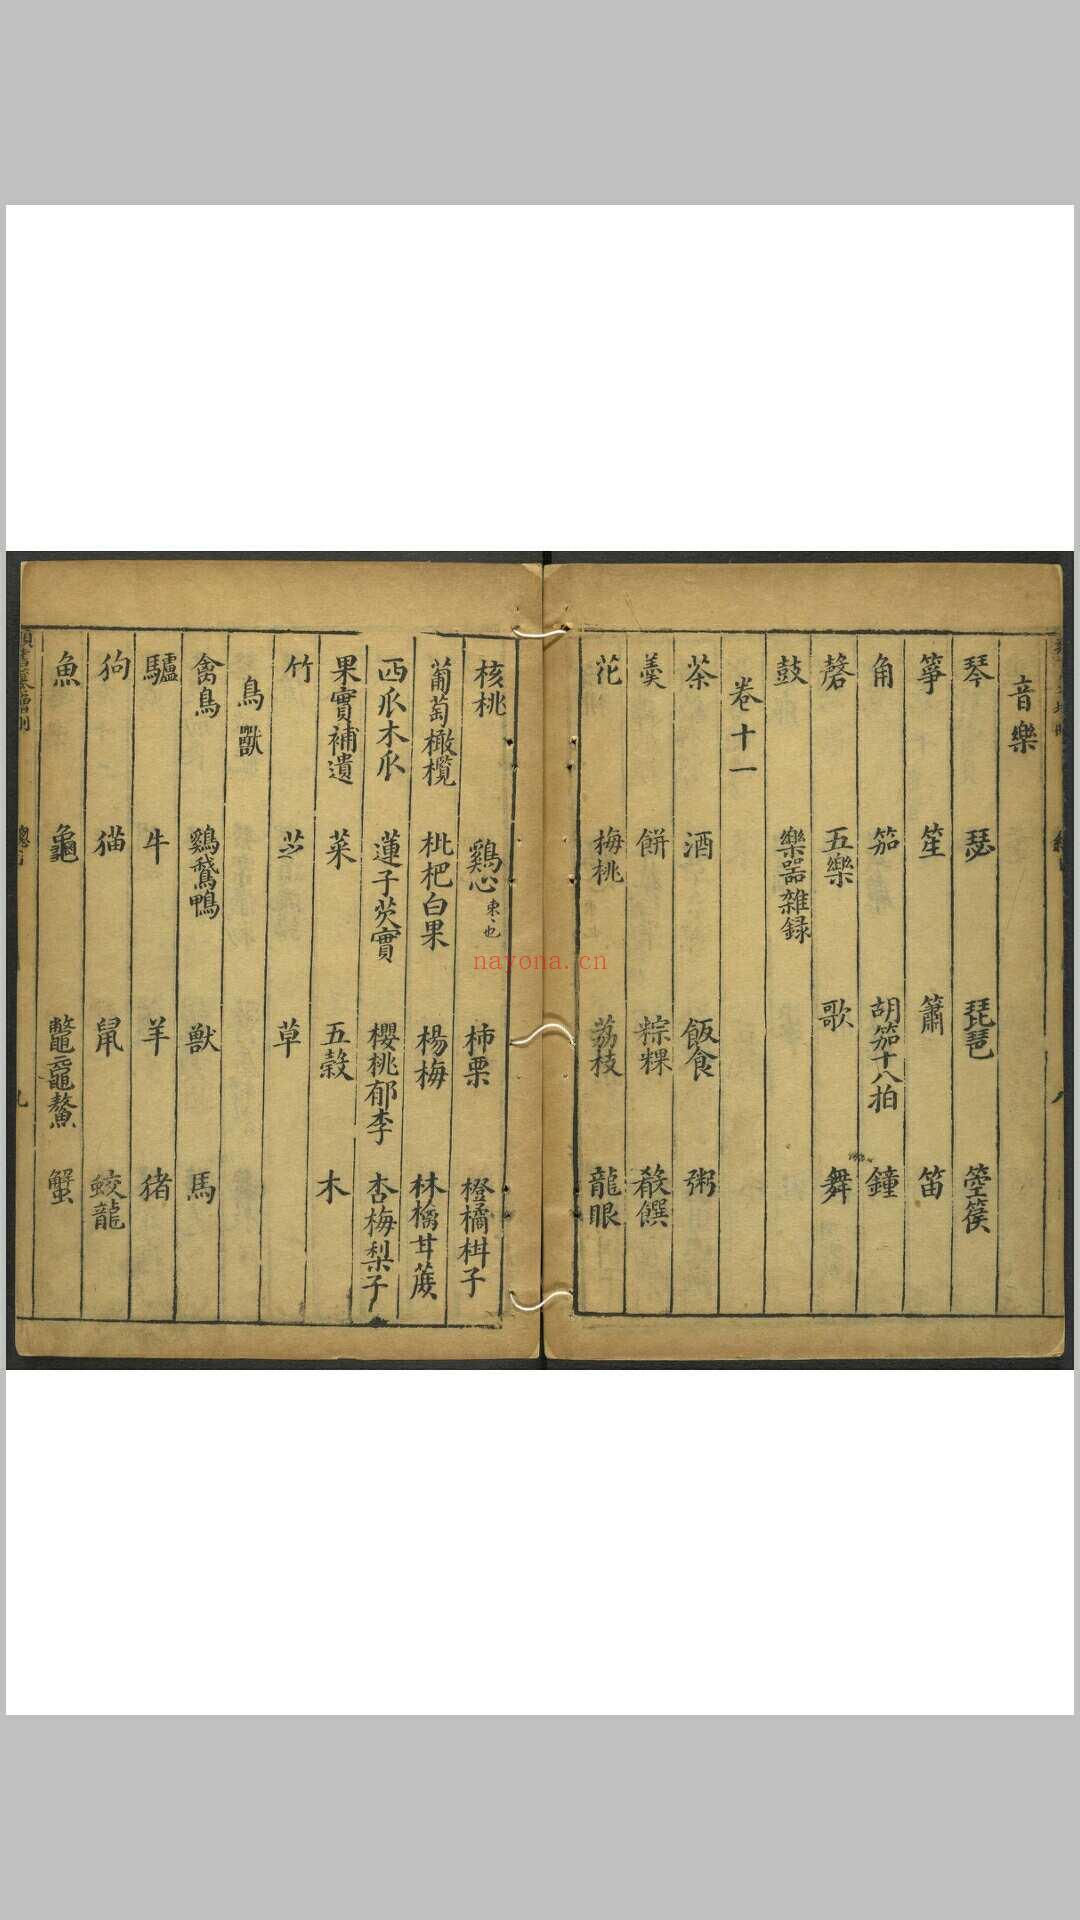 音樂
琴 瑟 琵琶 箜篌
箏 笙 簫 笛
角 笳 胡笳十八拍 鐘
磬 五樂 歌 舞
鼓 樂器雜録
卷十一
茶 酒 飯食 粥
羹 餅 粽粿 殽饌
花 梅桃 荔枝 龍眼
核桃 鷄心 棗也 柿栗 橙橘柑子
葡萄橄欖 枇杷白果 楊梅 林檎甘蔗
西瓜木瓜 蓮子芡實 櫻桃郁李 杏梅梨子
果實補遺 菜 五穀 木
竹 芝 草
鳥獸
禽鳥 鷄鵞鴨 獸 馬
驢 牛 羊 猪
狗 猫 鼠 蛟龍
魚 龜 鼈黿鰲 蟹
nayona.cn